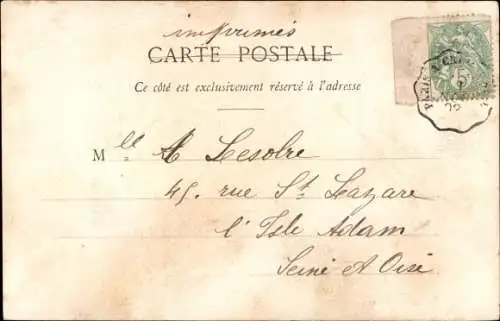 imprimés
CARTE POSTALE
Ce côté est exclusivement réservé à l'adresse
Mlle A Lesobre
45. rue St Lazare
l'Isle Adam
Seine & Oise
PARIS
5